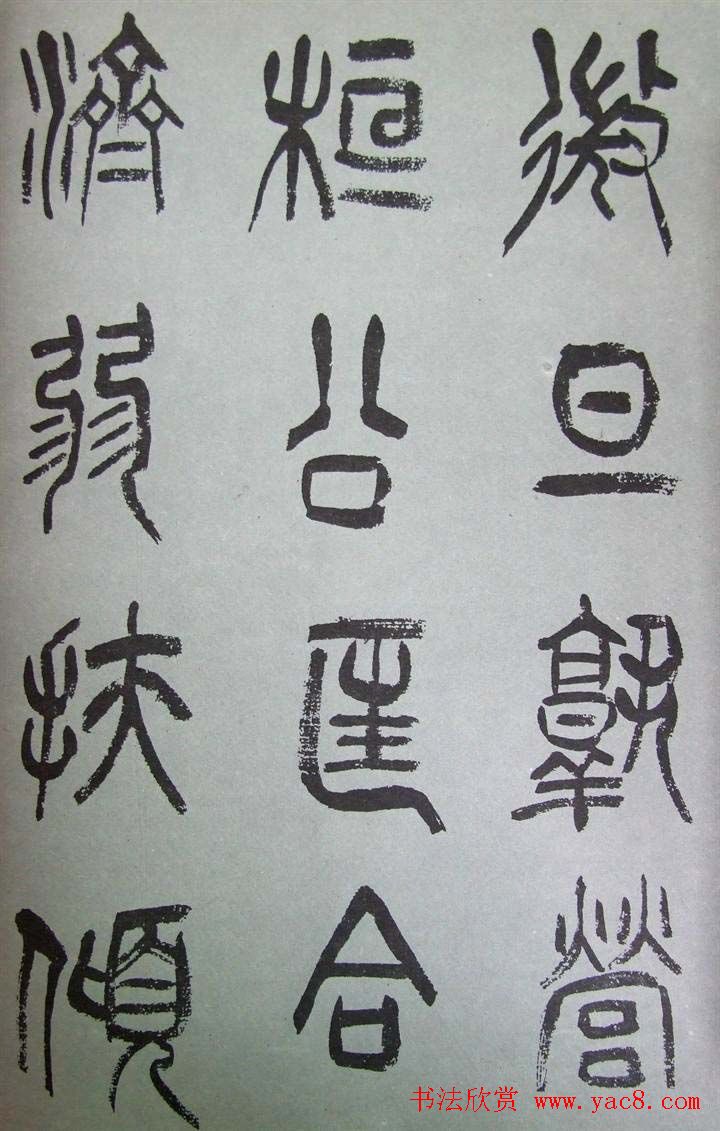 微旦孰營
桓公匡合
濟弱扶傾
书法欣赏 www.yac8.com